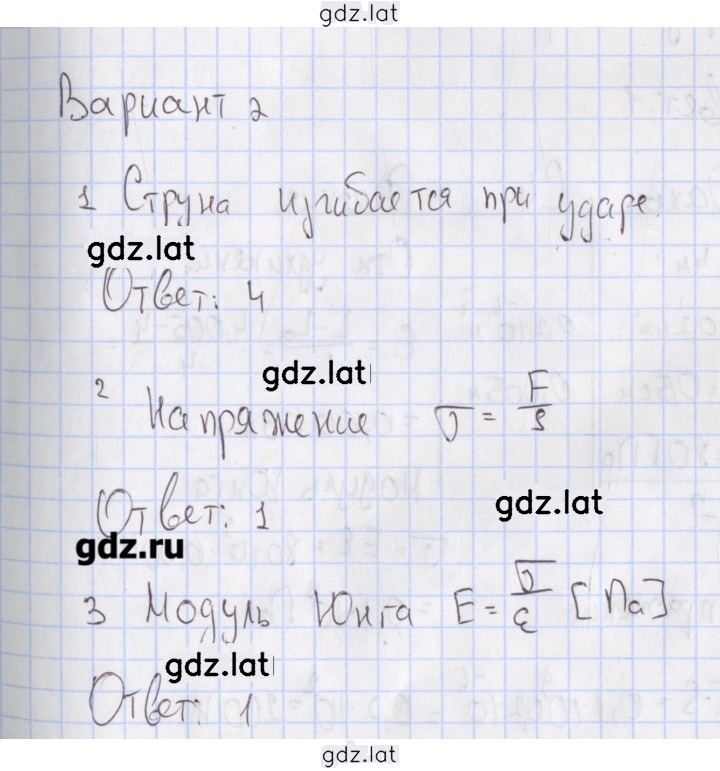 gdz.lat
Вариант 2
1 Струна изгибается при ударе.
gdz.lat
Ответ: 4
gdz.lat
2 Напряжение σ = F/S
gdz.lat
Ответ: 1
gdz.ru
3 Модуль Юнга E = σ/ε [Па]
gdz.lat
Ответ: 1
gdz.lat